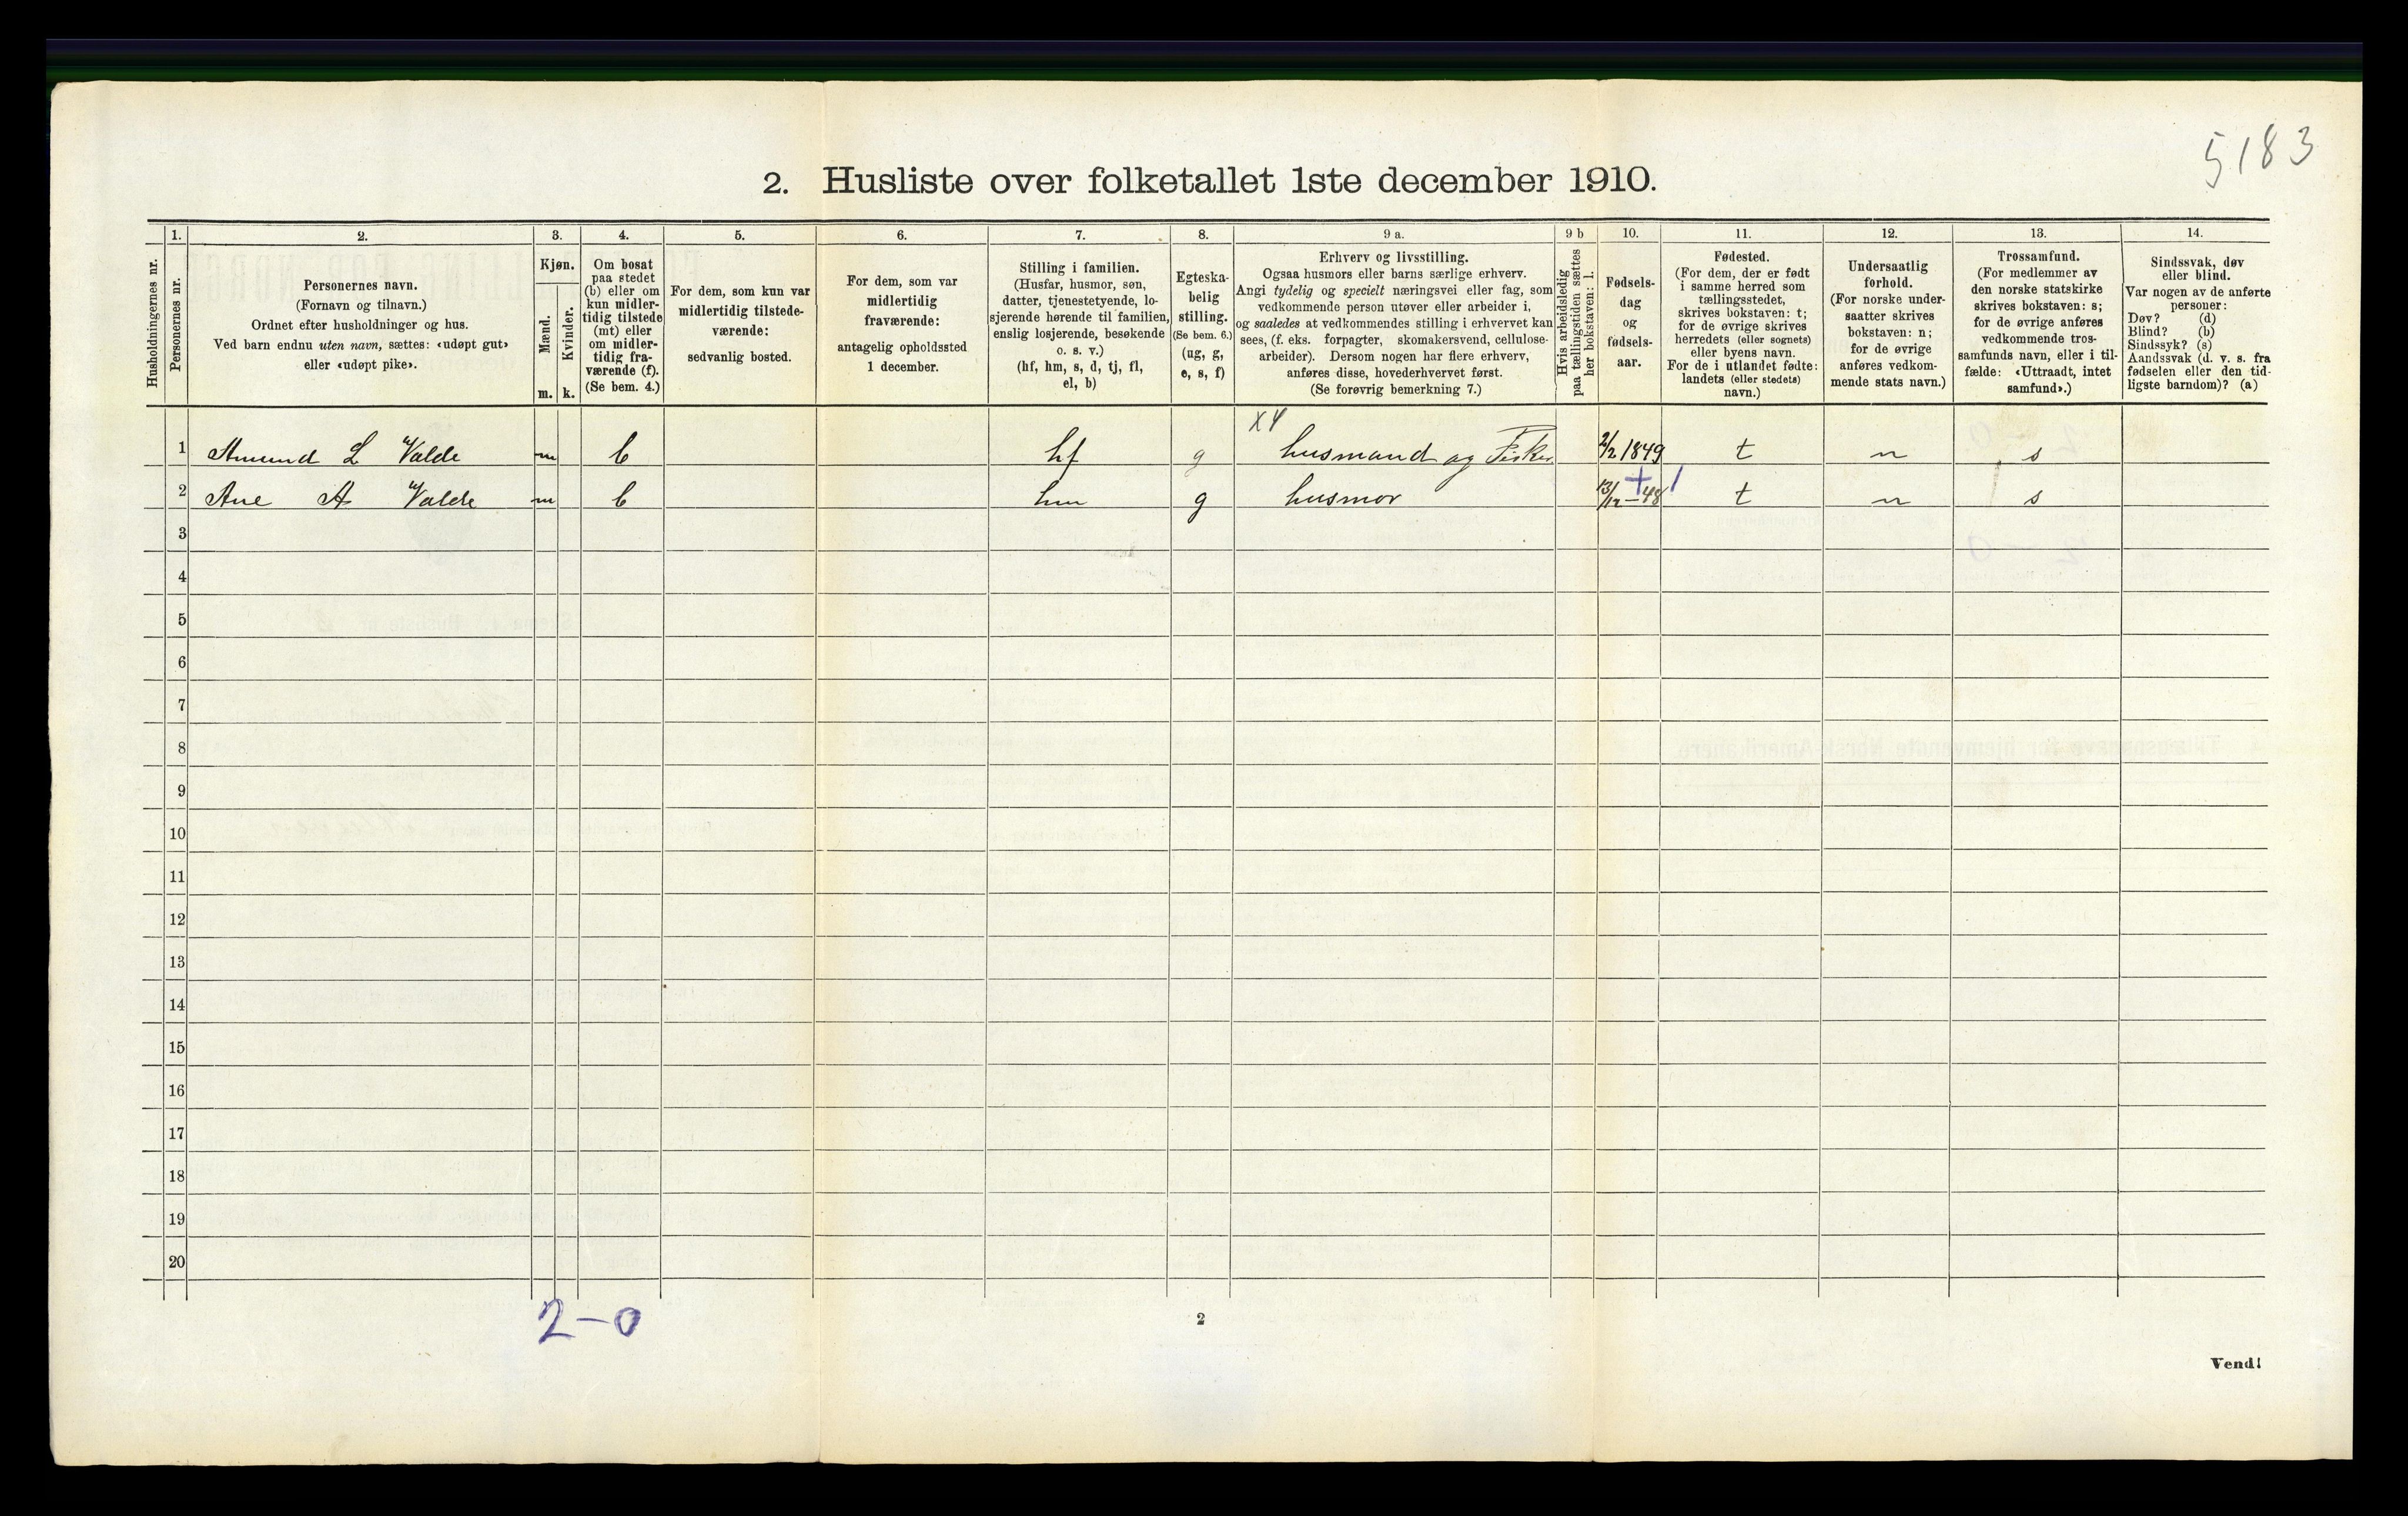 5183
2. Husliste over folketallet 1ste december 1910.
Husholdningernes nr.
1.
Personernes nr.
2.
Personernes navn.
(Fornavn og tilnavn.)
Ordnet efter husholdninger og hus.
Ved barn endnu uten navn, sættes: «udøpt gut»
eller «udøpt pike».
3.
Kjøn.
Mænd.
Kvinder.
m. k.
4.
Om bosat
paa stedet
(b) eller om
kun midler-
tidig tilstede
(mt) eller
om midler-
tidig fra-
værende (f).
(Se bem. 4.)
5.
For dem, som kun var
midlertidig tilstede-
værende:
sedvanlig bosted.
6.
For dem, som var
midlertidig
fraværende:
antagelig opholdssted
1 december.
7.
Stilling i familien.
(Husfar, husmor, søn,
datter, tjenestetyende, lo-
sjerende hørende til familien,
enslig losjerende, besøkende
o. s. v.)
(hf, hm, s, d, tj, fl,
el, b)
8.
Egteska-
belig
stilling.
(Se bem. 6.)
(ug, g,
e, s, f)
9 a.
Erhverv og livsstilling.
Ogsaa husmors eller barns særlige erhverv.
Angi tydelig og specielt næringsvei eller fag, som
vedkommende person utøver eller arbeider i,
og saaledes at vedkommendes stilling i erhvervet kan
sees, (f. eks. forpagter, skomakersvend, cellulose-
arbeider). Dersom nogen har flere erhverv,
anføres disse, hovederhvervet først.
(Se forøvrig bemerkning 7.)
9 b
Hvis arbeidsledig
paa tællingstiden sættes
her bokstaven: l.
10.
Fødsels-
dag
og
fødsels-
aar.
11.
Fødested.
(For dem, der er født
i samme herred som
tællingsstedet,
skrives bokstaven: t;
for de øvrige skrives
herredets (eller sognets)
eller byens navn.
For de i utlandet fødte:
landets (eller stedets)
navn.)
12.
Undersaatlig
forhold.
(For norske under-
saatter skrives
bokstaven: n;
for de øvrige
anføres vedkom-
mende stats navn.)
13.
Trossamfund.
(For medlemmer av
den norske statskirke
skrives bokstaven: s;
for de øvrige anføres
vedkommende tros-
samfunds navn, eller i til-
fælde: «Uttraadt, intet
samfund».)
14.
Sindssvak, døv
eller blind.
Var nogen av de anførte
personer:
Døv? (d)
Blind? (b)
Sindssyk? (s)
Aandssvak (d. v. s. fra
fødselen eller den tid-
ligste barndom)? (a)
X4
1 Amund L Valde m b hf g husmand og Fisker 2/2 1849 t n s
2 Ane A Valde m b hm g husmor 13/12 - 48 t n s
3
4
5
6
7
8
9
10
11
12
13
14
15
16
17
18
19
20
2-0
2
Vend!